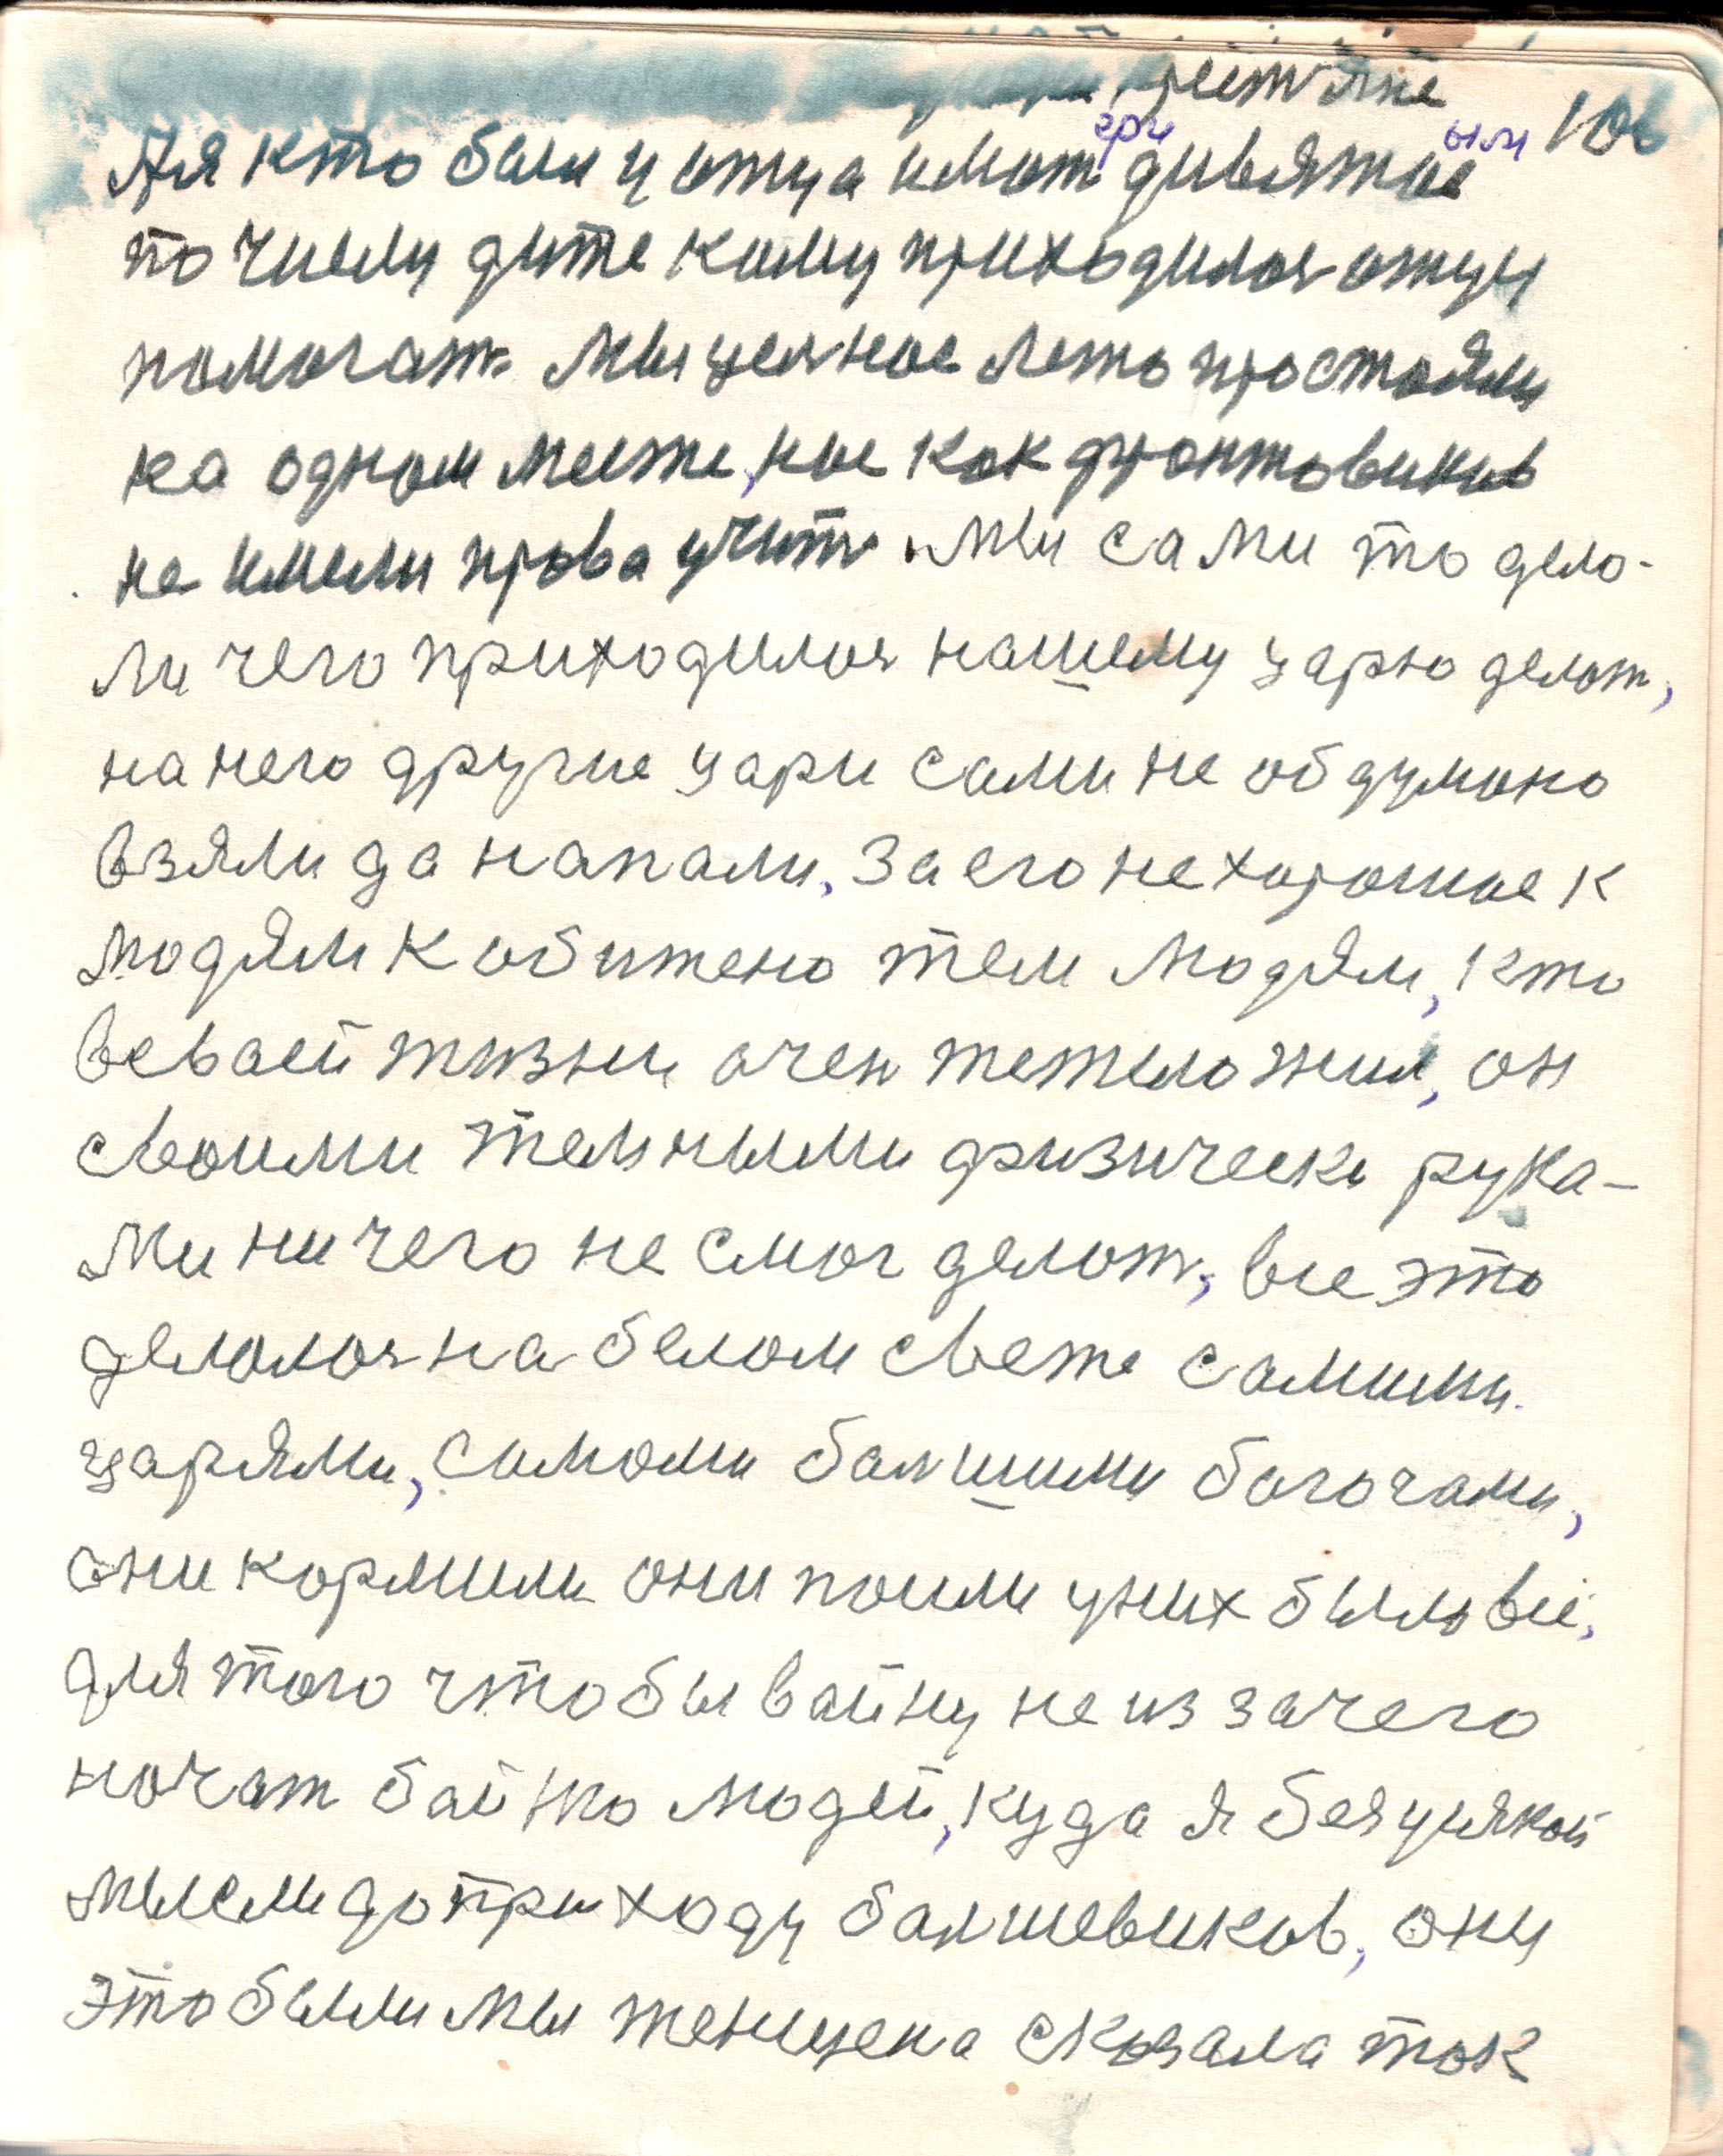 крестяне
106
ери ым
Ая кто был у отца имат дивятое
по числу дите кому приходилоя отцу
помогат. Мы целное лето простояли
на одном месте, нас как фронтовиков
не имели права учит. Мы сами то дело-
ли чего приходилоя нашему царю делот,
на него другие цари сами не обдумоно
взяли да напали, За его не хорошое к
людям к обитено тем людям, кто
всваей жизни очен тежело жил, он
своими тельными физически рука-
ми ни чего не смог делот, все это
делолоя на белом свете самими
царями, самоми балшими богочами,
они кормили они поили уних было всё,
для того чтобы вайну не из зачего
ночат байню людей, куда я без усякой
мысли до приходу балшевиков, они
это были мы женщена сказала ток